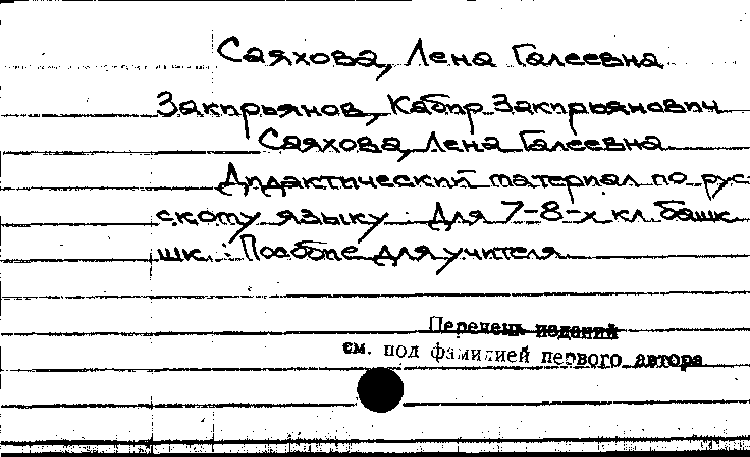 Саяхова, Лена Галеевна
Закирьянов, Кабир Закирьянович
Саяхова, Лена Галеевна
Дидактический материал по рус-
скому языку : Для 7-8-х кл. башк.
шк. : Пособие для учителя
Перечень изданий
см. под фамилией первого автора